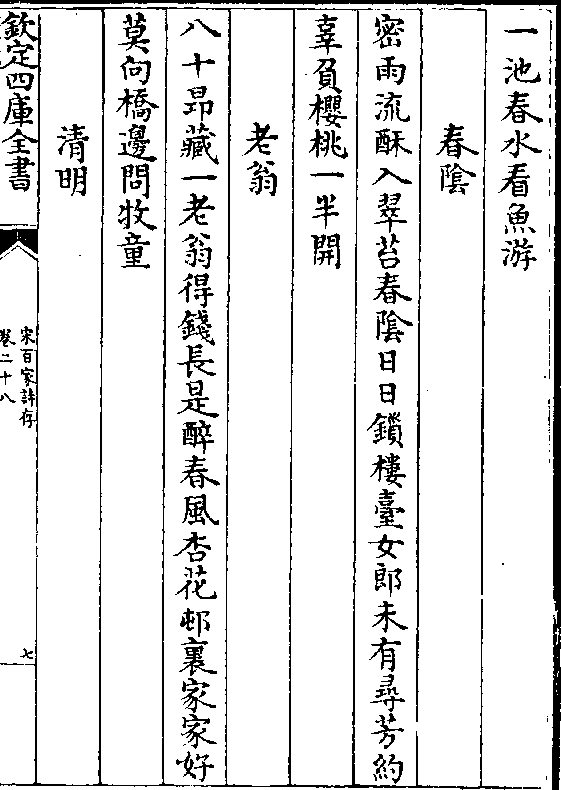 一池春水看魚游
春陰
密雨流酥入翠苔春陰日日鎖樓臺女郎未有尋芳約
辜負櫻桃一半開
老翁
八十昂藏一老翁得錢長是醉春風杏花邨裏家家好
莫向橋邊問牧童
清明
欽定四庫全書
宋百家詩存
卷二十八
七